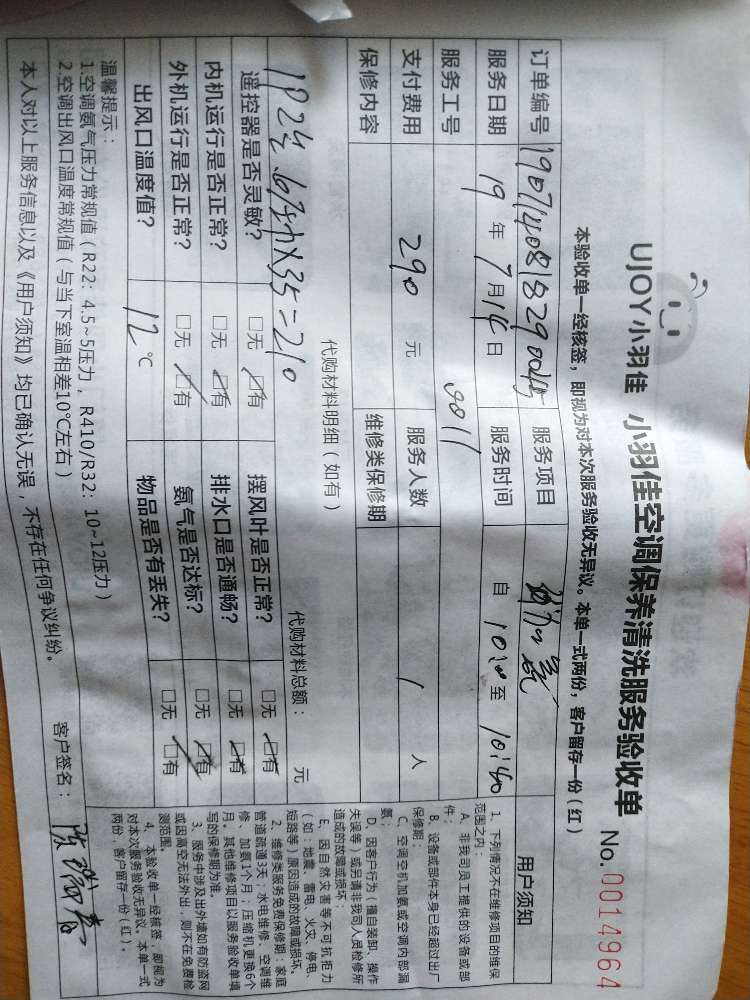 UJOY小羽佳 小羽佳空调保养清洗服务验收单 No. 0014964
本验收单一经核签，即视为对本次服务验收无异议。本单一式两份，客户留存一份（红）
订单编号 服务项目
服务日期 19 年 7 月 14 日 服务时间 自 至 10:40
服务工号 9011
支付费用 290 元 服务人数 1 人
保修内容 维修类保修期
代购材料明细（如有） 代购材料总额： 元
×35=210
遥控器是否灵敏？ □无 □有 摆风叶是否正常？ □无 □有
内机运行是否正常？ □无 □有 排水口是否通畅？ □无 □有
外机运行是否正常？ □无 □有 氨气是否达标？ □无 □有
出风口温度值？ 12 ℃ 物品是否有丢失？ □无 □有
温馨提示：
1.空调氨气压力常规值（R22：4.5~5压力，R410/R32：10~12压力）
2.空调出风口温度常规值（与当下室温相差10℃左右）
本人对以上服务信息以及《用户须知》均已确认无误，不存在任何争议纠纷。 客户签名：
用户须知
1、下列情况不在维修项目的维保
范围之内：
A、非我司员工提供的设备或部
件；
B、设备或部件本身已经超过出厂
保修期；
C、空调空机加氨或空调内部漏
氨；
D、因客户行为（擅自装卸、操作
失误等）或另请非我司人员检修所
造成的故障或损坏；
E、因自然灾害等不可抗拒力
（如：地震、雷电、火灾、停电、
短路等）原因造成的故障或损坏。
2、维修类服务免费保修期：家庭
管道疏通3天；水电维修、空调维
修、加氨1个月；压缩机更换6个
月。其他维修项目以服务验收单填
写的保修期为准。
3、服务中涉及出外墙如有防盗网
或因高空无法外出，则不在免费检
测范围。
4、本验收单一经核签，即视为
对本次服务验收无异议。本单一式
两份，客户留存一份（红）。